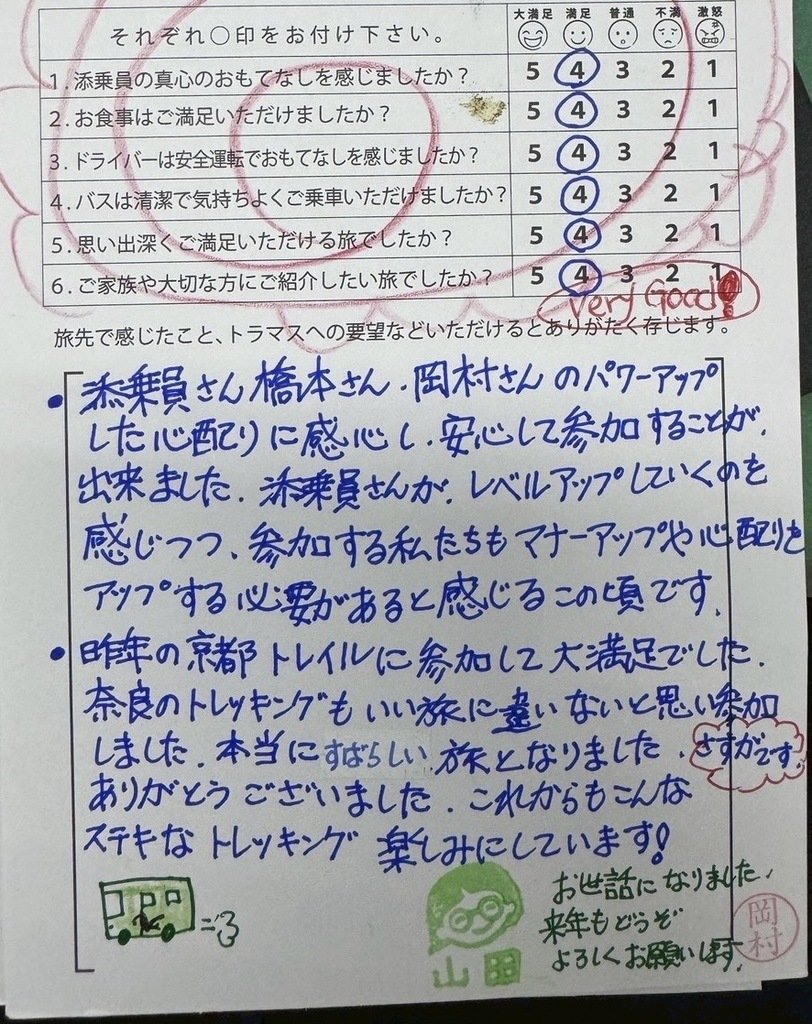 それぞれ〇印をお付け下さい。 大満足 満足 普通 不満 激怒
1.添乗員の真心のおもてなしを感じましたか？ 5 4 3 2 1
2.お食事はご満足いただけましたか？ 5 4 3 2 1
3.ドライバーは安全運転でおもてなしを感じましたか？ 5 4 3 2 1
4.バスは清潔で気持ちよくご乗車いただけましたか？ 5 4 3 2 1
5.思い出深くご満足いただける旅でしたか？ 5 4 3 2 1
6.ご家族や大切な方にご紹介したい旅でしたか？ 5 4 3 2 1
Very Good!
旅先で感じたこと、トラマスへの要望などいただけるとありがたく存じます。
・添乗員さん橋本さん.岡村さんのパワーアップ
した心配りに感心し.安心して参加することが.
出来ました.添乗員さんが.レベルアップしていくのを
感じつつ、参加する私たちもマナーアップや心配りを
アップする必要があると感じるこの頃です.
・昨年の京都トレイルに参加して大満足でした.
奈良のトレッキングもいい旅に違いないと思い参加
しました.本当にすばらしい旅となりました.
さすがです
ありがとうございました.これからもこんな
ステキなトレッキング楽しみにしています!
お世話になりました.
来年もどうぞ
よろしくお願いします.
岡村
山田